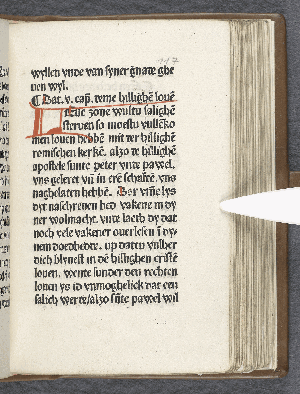 wyllen vnde van syner gnade ghe
uen wyl.
Dat .v. cap. teme hillighē louē
Leue zone wultu salighē
steruen so moestu vullēko
men louen hebbē mit ter hillighē
remischen kerkē. alzo te hillighē
apostele sunte peter vnte pawel.
vns geleret vn̄ in erē schrifte. vns
naghelaten hebbē. Der vmme lys
dyt naschreuen bed vakene in dy
ner wolmacht. vnde laeth dy dat
noch vele vakener ouerlesen ī dy
nem doedbedde. up dattu vulher
dich blyuest in dē hillighen cristē
louen. wente sunder den rechten
louen ys id vnmoghelick dat een
salich werte/alzo sūte pawel wil